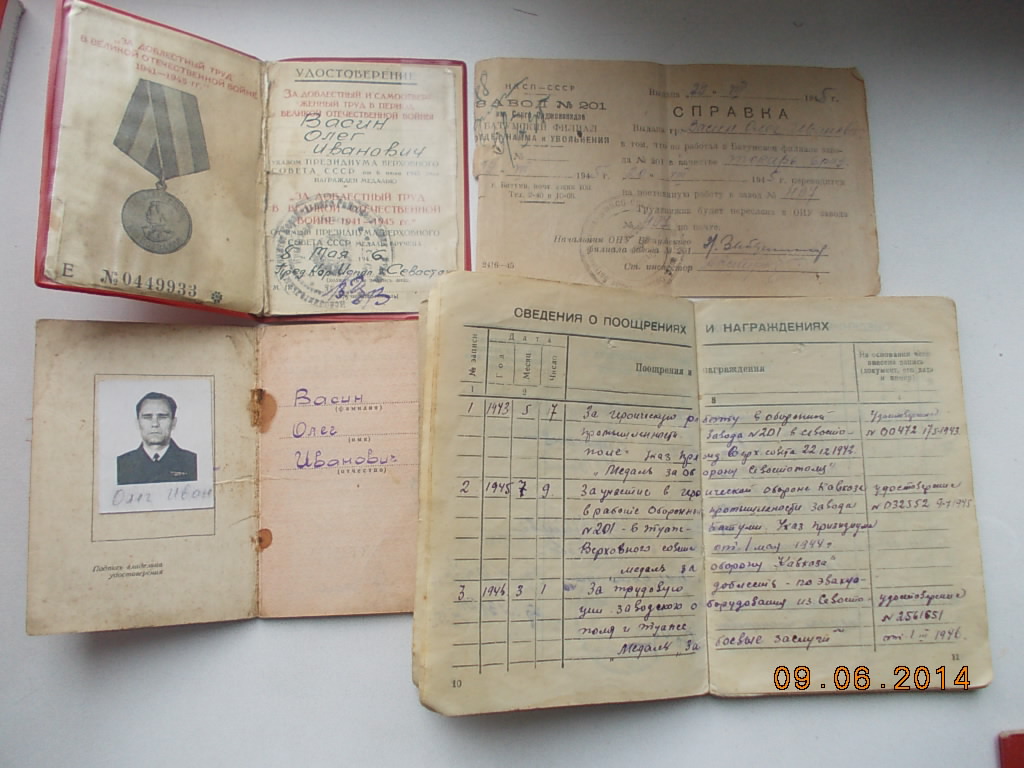 „ЗА ДОБЛЕСТНЫЙ ТРУД
В ВЕЛИКОЙ ОТЕЧЕСТВЕННОЙ ВОЙНЕ
1941—1945 гг."
Е №0449933
УДОСТОВЕРЕНИЕ
ЗА ДОБЛЕСТНЫЙ И САМООТВЕР-
ЖЕННЫЙ ТРУД В ПЕРИОД
ВЕЛИКОЙ ОТЕЧЕСТВЕННОЙ ВОЙНЫ
Васин
Олег
Иванович
УКАЗОМ ПРЕЗИДИУМА ВЕРХОВНОГО
СОВЕТА СССР
НАГРАЖДЕН МЕДАЛЬЮ
„ЗА ДОБЛЕСТНЫЙ ТРУД
В ВЕЛИКОЙ ОТЕЧЕСТВЕННОЙ
ВОЙНЕ 1941—1945 гг."
ПРЕЗИДИУМА ВЕРХОВНОГО
СОВЕТА СССР МЕДАЛЬ ВРУЧЕНА
8 Мая
НКСП—СССР
ЗАВОД № 201
им. Серго Орджоникидзе
БАТУМСКИЙ ФИЛИАЛ
НАЙМА И УВОЛЬНЕНИЯ
№
г. Батуми, почт. ящик
Тел.
2416—45
Выдана
СПРАВКА
Выдана гр. Васин Олег
в том, что он работал в Батумском филиале заво-
да № 201 в качестве токарь
194 5 г. переводится
на постоянную работу в завод №
Трудкнижка будет переслана в ОНУ завода
№ по почте.
Начальник ОНУ Батумского
филиала завода № 201
Ст. инспектор
Олег Иван
Подпись владельца
удостоверения
Васин
(фамилия)
Олег
(имя)
Иванович
(отчество)
СВЕДЕНИЯ О ПООЩРЕНИЯХ И НАГРАЖДЕНИЯХ
№ записи
Дата
Год
Месяц
Число
Поощрения и награждения
На основании чего
внесена запись
(документ, его дата
и номер)
1 2 3
1 1943 5 17 За героическую работу в оборонной удостоверение
промышленности завода №201 в Севасто- № 00472 17.5.1943
поле. Указ през. Верх. совета 22.12.1942.
„Медаль за оборону Севастополя"
2. 1945 7 9. За участие в героической обороне Кавказа удостоверение
в работе оборонной промышленности завода № 032352
№201 - в Туапсе, Батуми. Указ президиума
Верховного совета от 1 мая 1944 г
„медаль за оборону Кавказа"
3 1946 3 1 За трудовую доблесть - по эвакуа-
ции заводского оборудования из Севасто- удостоверение
поля и Туапсе. № 2561651
„Медаль „За боевые заслуги" от 1 III 1946.
10
11
09.06.2014